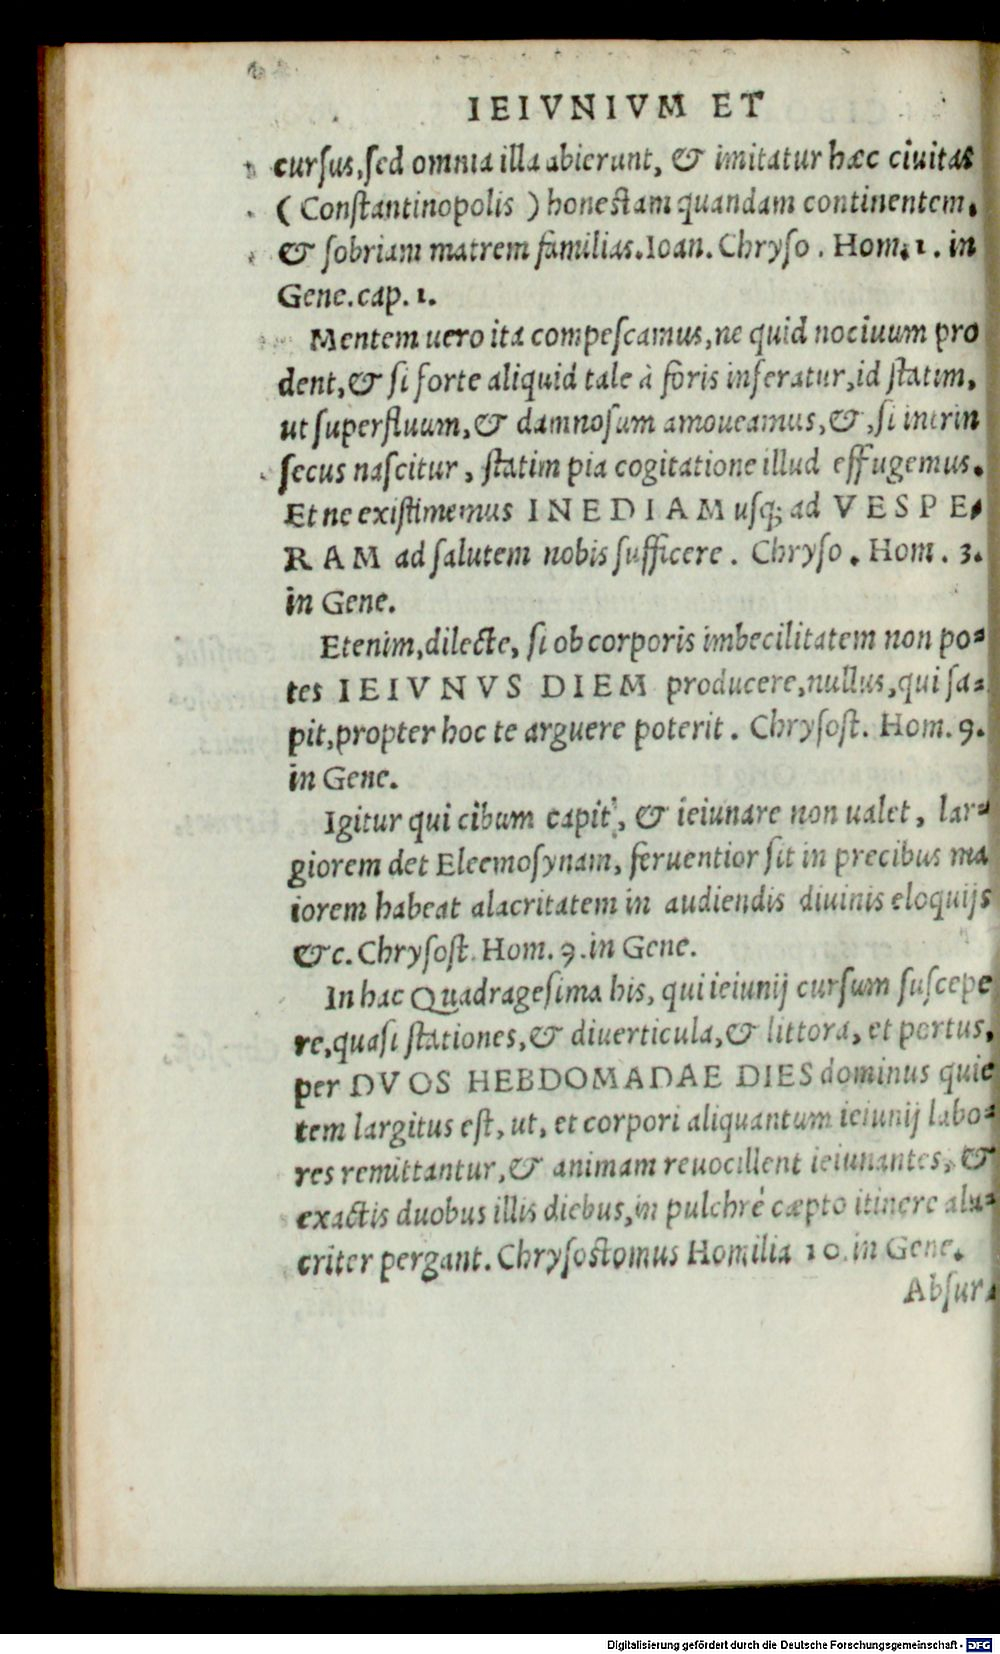 IEIVNIVM ET
cursus, sed omnia illa abierunt, & imitatur hæc ciuitas
( Constantinopolis ) honestam quandam continentem,
& sobriam matrem familias. Ioan. Chryso. Hom. 1. in
Gene. cap. 1.
Mentem uero ita compescamus, ne quid nociuum pro
dent, & si forte aliquid tale à foris inseratur, id statim,
ut superfluum, & damnosum amoueamus, &, si intrin
secus nascitur, statim pia cogitatione illud effugemus.
Et ne existimemus INEDIAM usq; ad VESPE-
RAM ad salutem nobis sufficere. Chryso. Hom. 3.
in Gene.
Etenim, dilecte, si ob corporis imbecilitatem non po-
tes IEIVNVS DIEM producere, nullus, qui sa-
pit, propter hoc te arguere poterit. Chrysost. Hom. 9.
in Gene.
Igitur qui cibum capit, & ieiunare non ualet, lar-
giorem det Eleemosynam, feruentior sit in precibus ma
iorem habeat alacritatem in audiendis diuinis eloquijs
&c. Chrysost. Hom. 9. in Gene.
In hac Quadragesima his, qui ieiunij cursum suscepe
re, quasi stationes, & diuerticula, & littora, et portus,
per DVOS HEBDOMADAE DIES dominus quie
tem largitus est, ut, et corpori aliquantum ieiunij labo-
res remittantur, & animam reuocillent ieiunantes, &
exactis duobus illis diebus, in pulchrè cæpto itinere ala-
criter pergant. Chrysostomus Homilia 10. in Gene.
Absur-
Digitalisierung gefördert durch die Deutsche Forschungsgemeinschaft - DFG